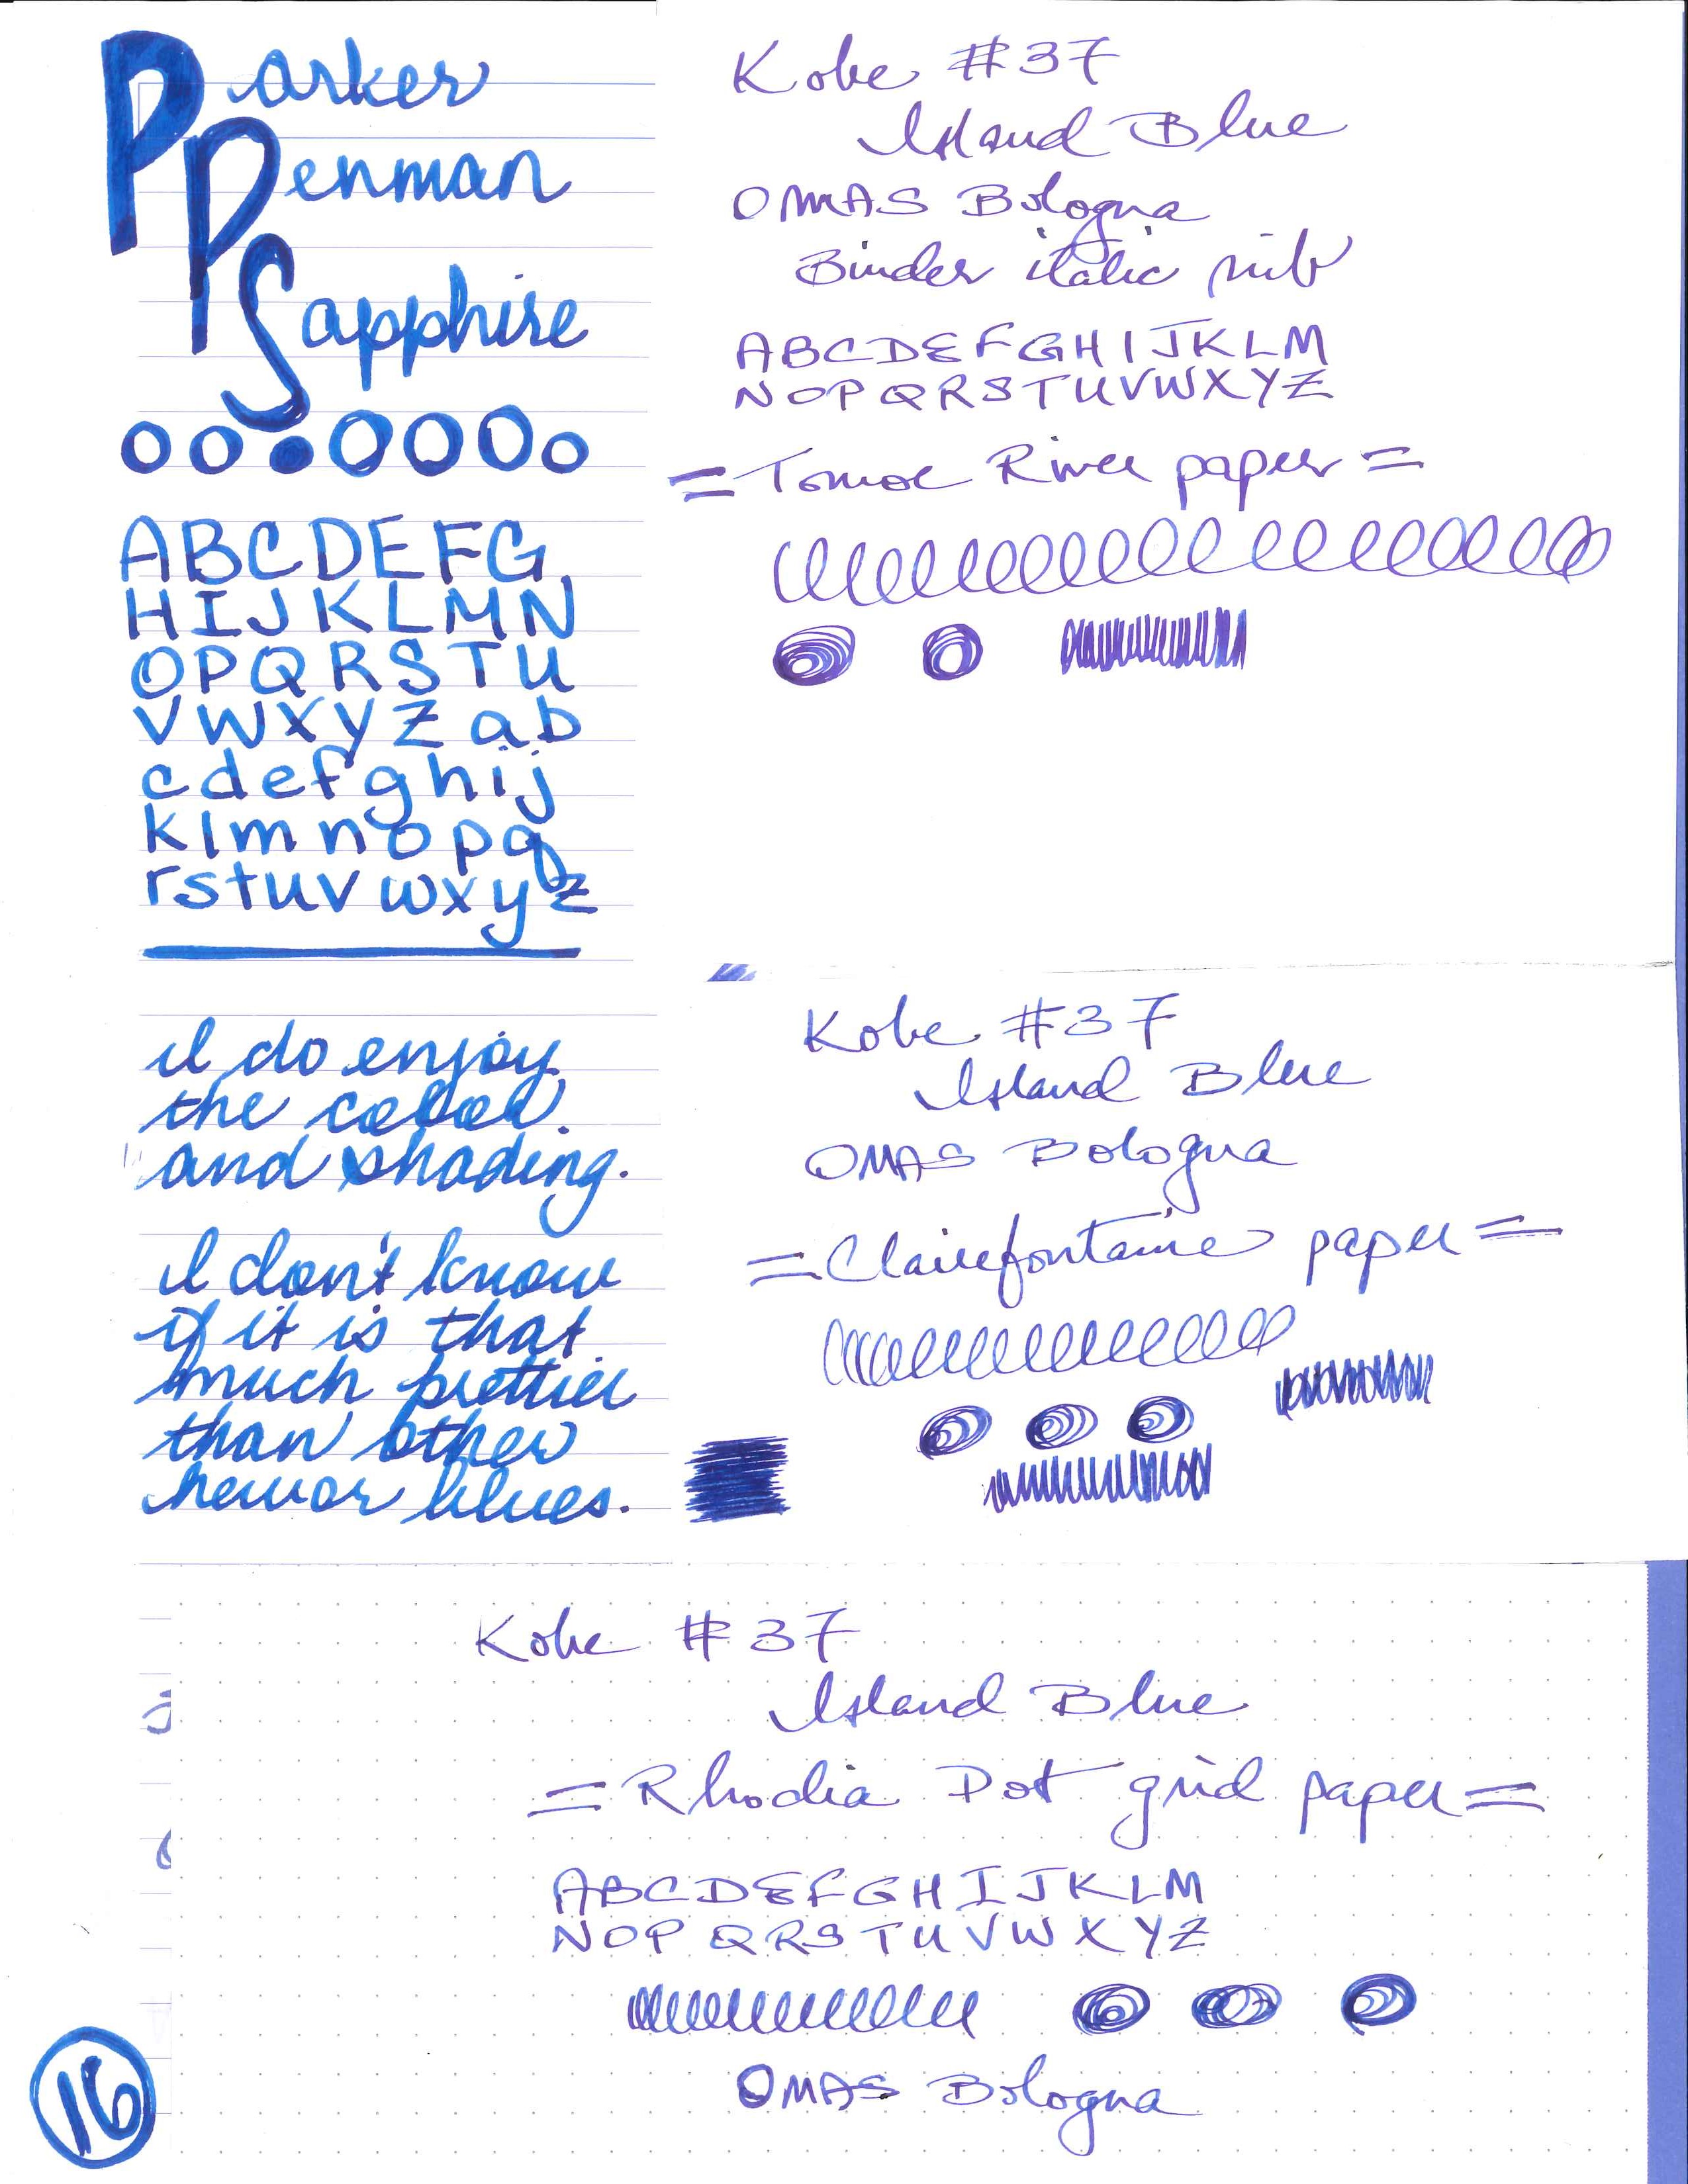 Parker
Penman
Sapphire
ABCDEFG
HIJKLMN
OPQRSTU
VWXYZab
cdefghij
klmnopq
rstuvwxyz
I do enjoy
the color
and shading.
I don't know
if it is that
much prettier
than other
newer blues.
Kobe #37
Island Blue
OMAS Bologna
Binder italic nib
ABCDEFGHIJKLM
NOPQRSTUVWXYZ
=Tomoe River paper=
Kobe #37
Island Blue
OMAS Bologna
=Clairefontaine paper=
Kobe #37
Island Blue
=Rhodia Dot grid paper=
ABCDEFGHIJKLM
NOPQRSTUVWXYZ
OMAS Bologna
16